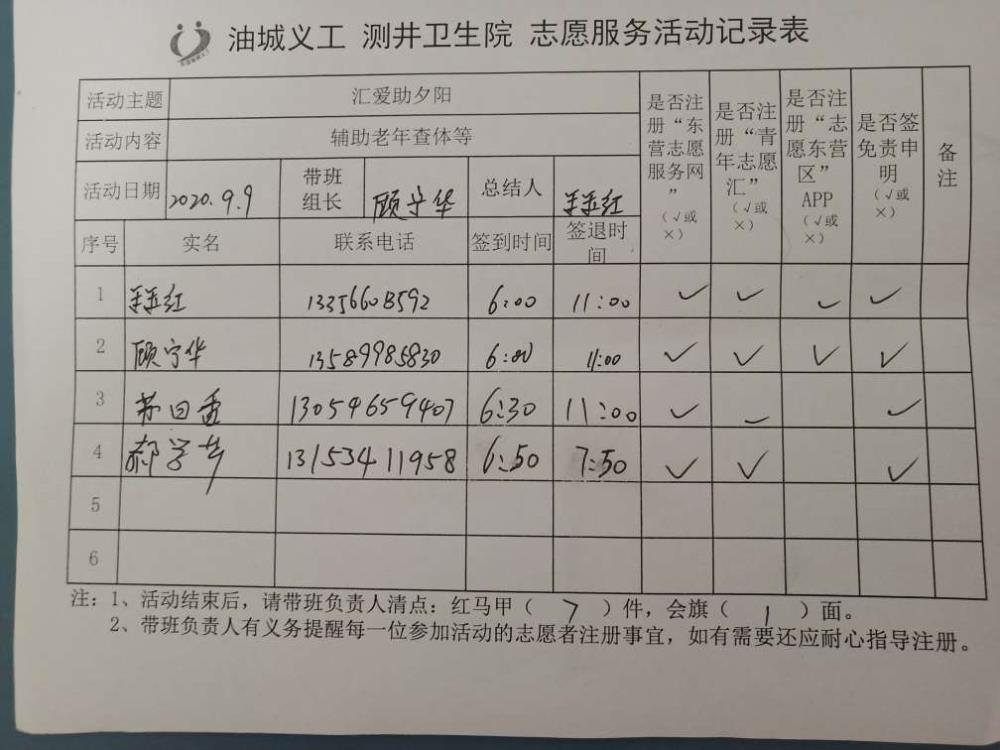 油城义工 测井卫生院 志愿服务活动记录表
活动主题 汇爱助夕阳
活动内容 辅助老年查体等
活动日期 2020.9.9 带班组长 顾宁华 总结人 王玉红
是否注册“东营志愿服务网”（√或×）
是否注册“青年志愿汇”（√或×）
是否注册“志愿东营区”APP（√或×）
是否签免责申明（√或×）
备注
序号 实名 联系电话 签到时间 签退时间
1 王玉红 13356608592 6:00 11:00 ✓ ✓ ✓ ✓
2 顾宁华 13589985830 6:00 11:00 ✓ ✓ ✓ ✓
3 苏曰 13054659407 6:30 11:00 ✓ ✓ ✓
4 郝学 13153411958 6:50 7:50 ✓ ✓ ✓
5
6
注：1、活动结束后，请带班负责人清点：红马甲（ 7 ）件，会旗（ 1 ）面。
2、带班负责人有义务提醒每一位参加活动的志愿者注册事宜，如有需要还应耐心指导注册。